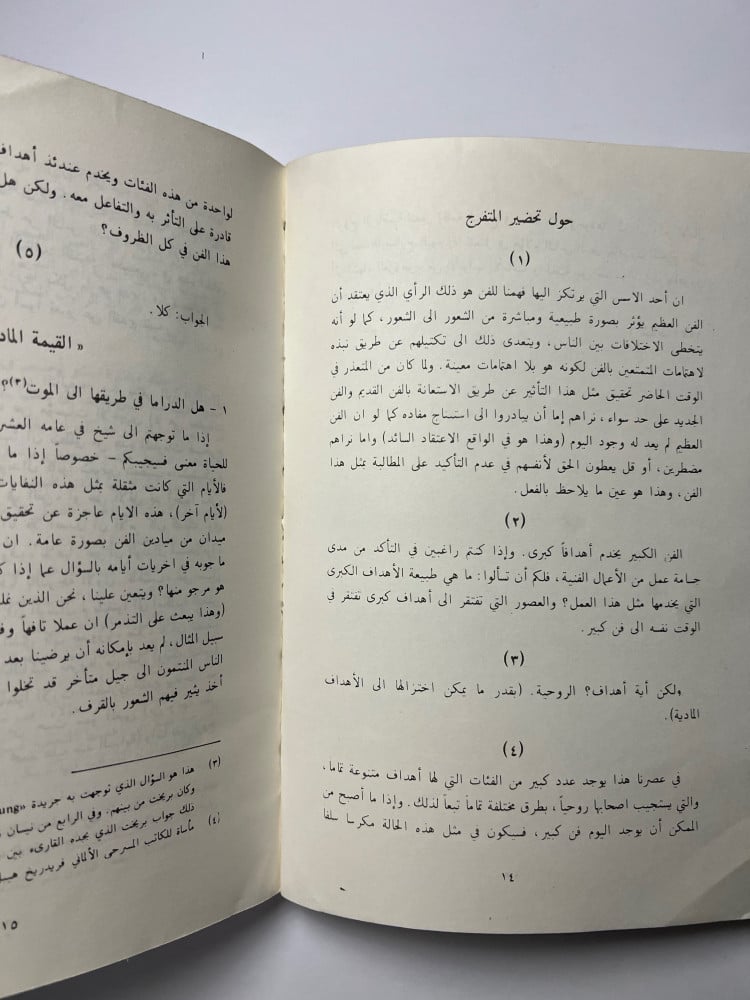 حول تحضير المتفرج
(١)
ان أحد الاسس التي يرتكز اليها فهمنا للفن هو ذلك الرأي الذي يعتقد أن
الفن العظيم يؤثر بصورة طبيعية ومباشرة من الشعور الى الشعور، كما لو أنه
يتخطى الاختلافات بين الناس، ويتعدى ذلك الى تكتيلهم عن طريق نبذه
لاهتمامات المتمتعين بالفن لكونه هو بلا اهتمامات معينة. ولما كان من المتعذر في
الوقت الحاضر تحقيق مثل هذا التأثير عن طريق الاستعانة بالفن القديم والفن
الجديد على حد سواء، نراهم إما أن يبادروا الى استنتاج مفاده كما لو ان الفن
العظيم لم يعد له وجود اليوم (وهذا هو في الواقع الاعتقاد السائد) واما نراهم
مضطرين، أو قل يعطون الحق لأنفسهم في عدم التأكيد على المطالبة بمثل هذا
الفن، وهذا هو عين ما يلاحظ بالفعل.
(٢)
الفن الكبير يخدم أهدافاً كبرى. وإذا كنتم راغبين في التأكد من مدى
جسامة عمل من الأعمال الفنية، فلكم أن تسألوا: ما هي طبيعة الأهداف الكبرى
التي يخدمها مثل هذا العمل؟ والعصور التي تفتقر الى أهداف كبرى تفتقر في
الوقت نفسه الى فن كبير.
(٣)
ولكن أية أهداف؟ الروحية. (بقدر ما يمكن اختزالها الى الأهداف
المادية).
(٤)
في عصرنا هذا يوجد عدد كبير من الفئات التي لها أهداف متنوعة تماما،
والتي يستجيب اصحابها روحياً، بطرق مختلفة تماماً تبعاً لذلك. وإذا ما أصبح من
الممكن أن يوجد اليوم فن كبير، فسيكون في مثل هذه الحالة مكرسا سلفا
١٤
لواحدة من هذه الفئات ويخدم عندئذ أهداف
قادرة على التأثر به والتفاعل معه. ولكن هل
هذا الفن في كل الظروف؟
الجواب: كلا.
(٥)
« القيمة الماد
١ - هل الدراما في طريقها الى الموت(٣)؟
إذا ما توجهتم الى شيخ في عامه العشر
للحياة معنى فسيجيبكم - خصوصاً إذا ما
فالأيام التي كانت مثقلة بمثل هذه النفايات
(لأيام آخر)، هذه الايام عاجزة عن تحقيق
ميدان من ميادين الفن بصورة عامة. ان
ما جوبه في اخريات أيامه بالسؤال عما إذا ك
هو مرجو منها؟ ويتعين علينا، نحن الذين نمل
(وهذا يبعث على التذمر) ان عملا تافهاً وف
سبيل المثال، لم يعد بإمكانه أن يرضينا بعد
الناس المنتمون الى جيل متأخر قد تخلوا
أخذ يثير فيهم الشعور بالقرف.
(٣) هذا هو السؤال الذي توجهت به جريدة «ung
وكان بريخت من بينهم. وفي الرابع من نيسان
ذلك جواب بريخت الذي يجده القارىء بين
(٤) مأساة للكاتب المسرحي الألماني فريدريخ هيبل
١٥